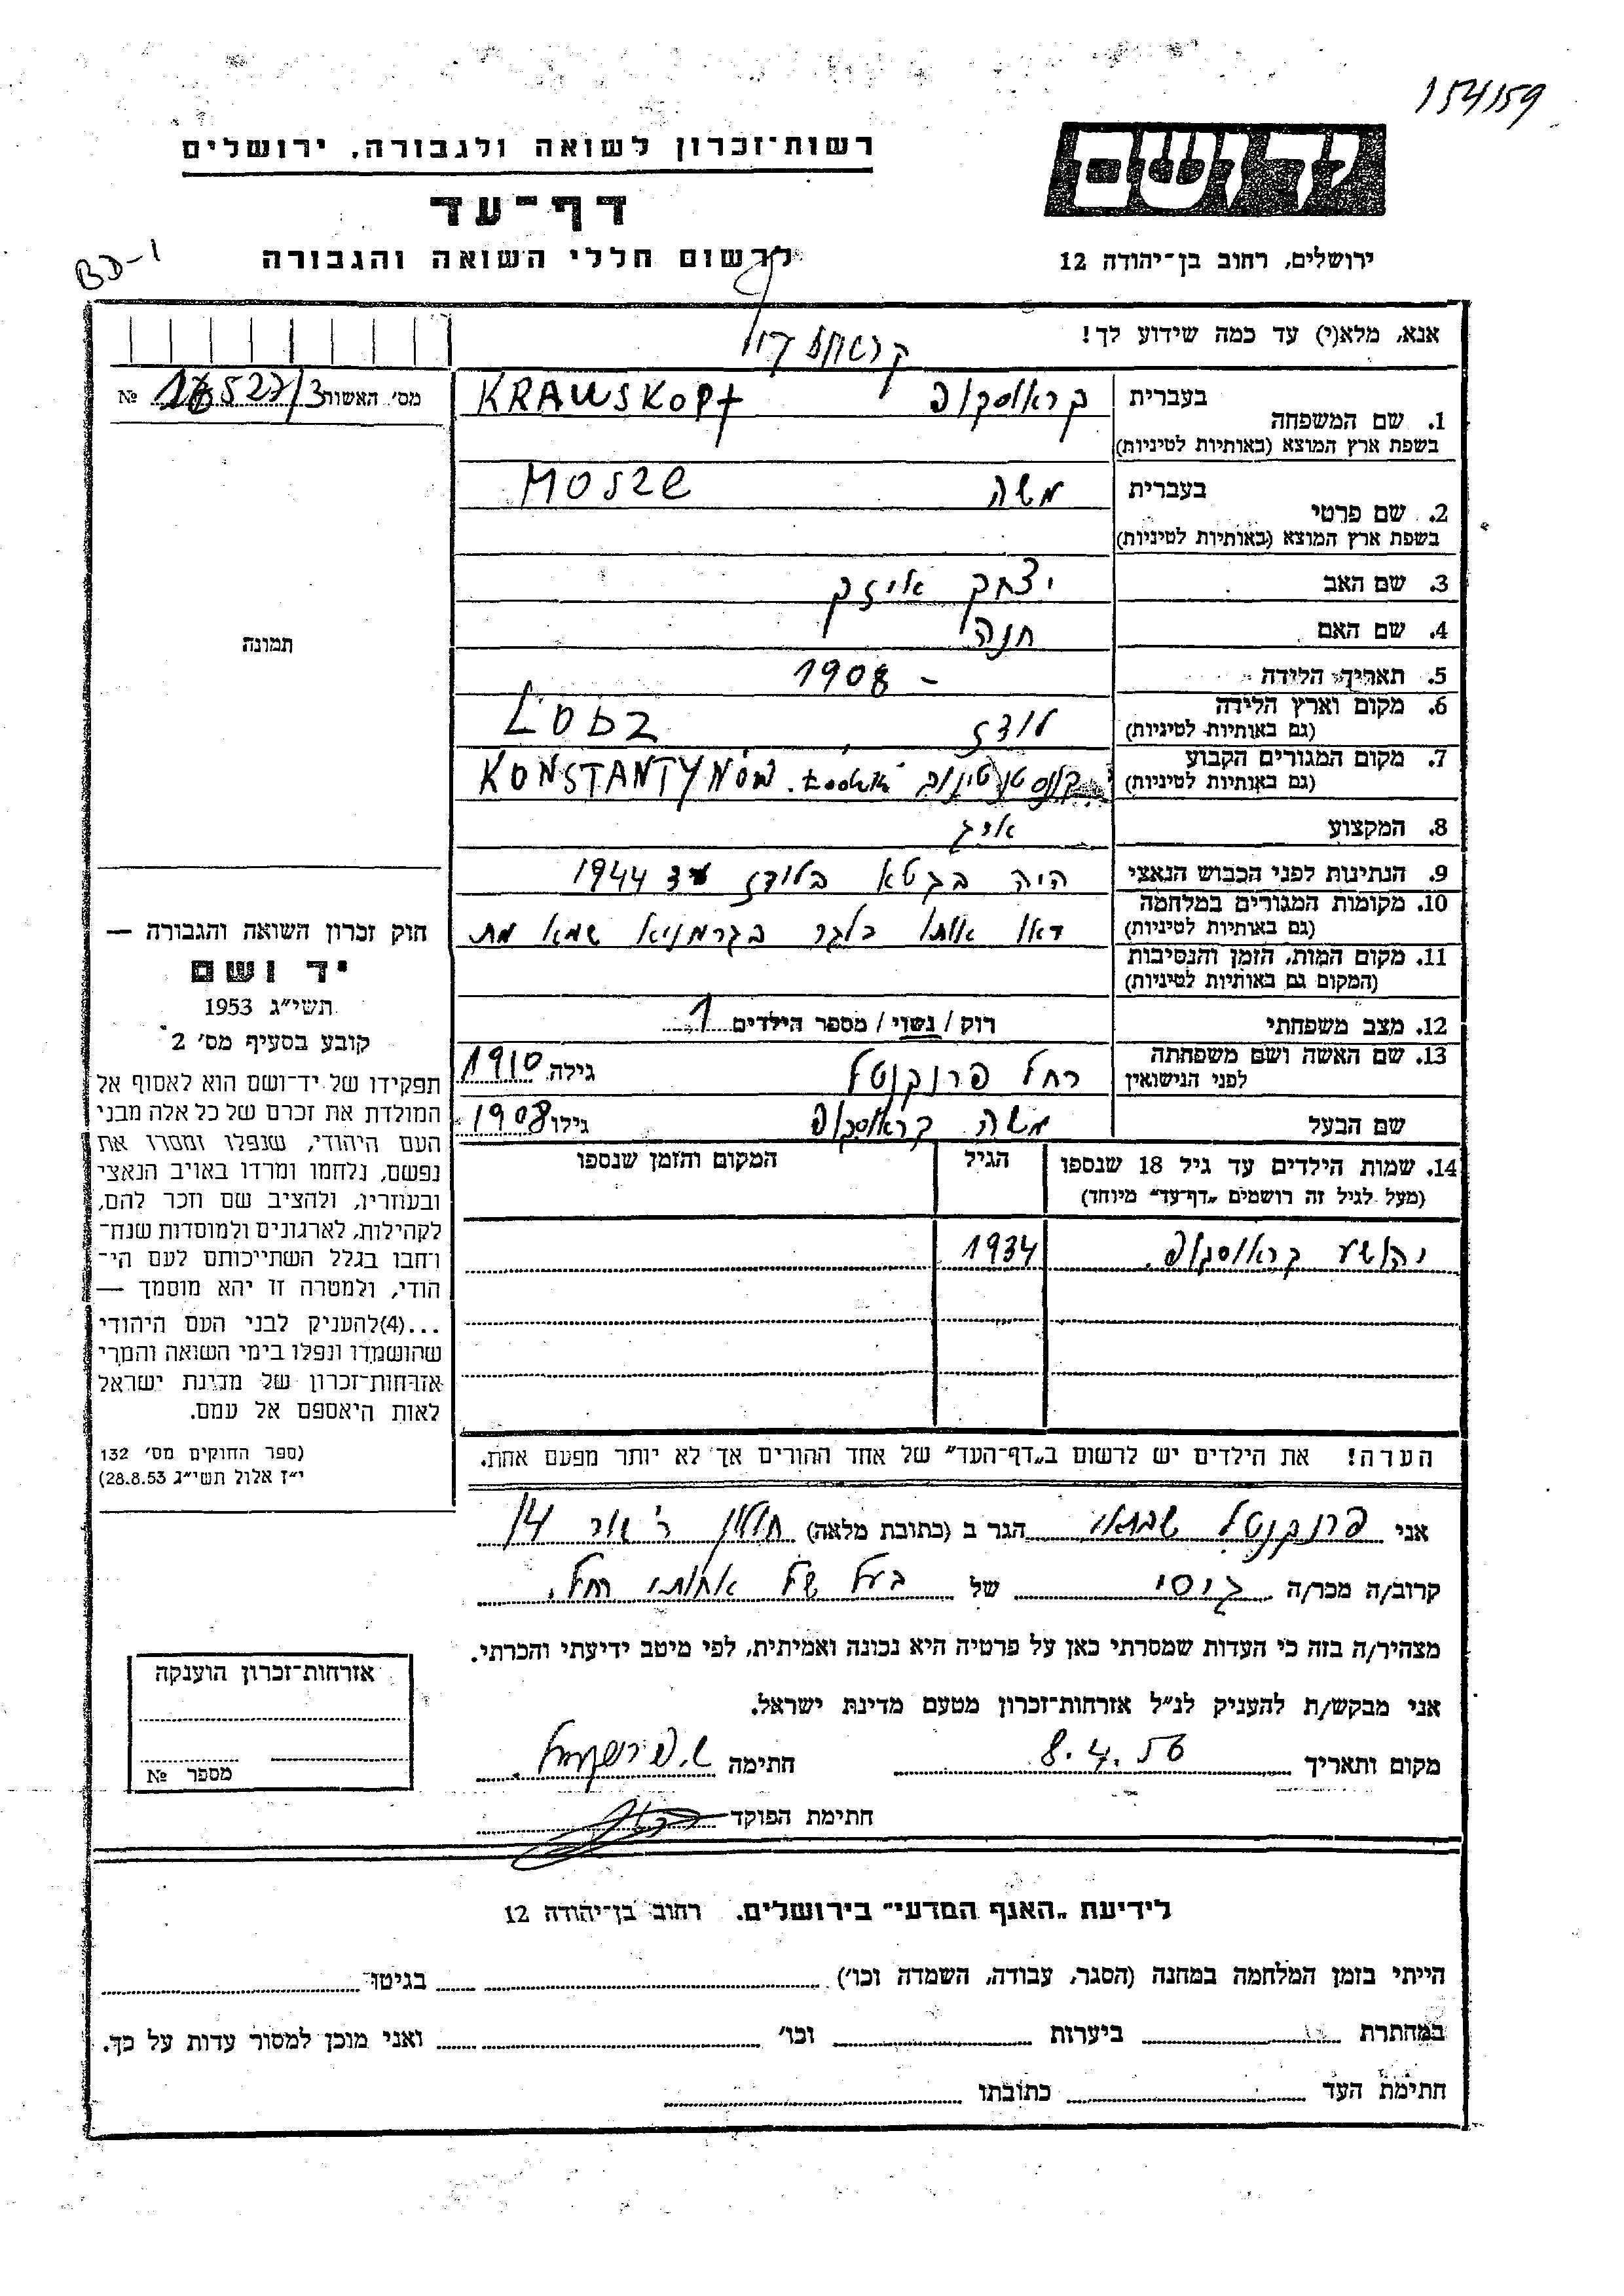 154159
יד ושם
רשות־זכרון לשואה ולגבורה, ירושלים
דף־עד
לרשום חללי השואה והגבורה
ירושלים, רחוב בן־יהודה 12
BD-1
אנא, מלא(י) עד כמה שידוע לך!
מס׳ האשות 16527/3 №
1. שם המשפחה
בעברית קראוסקופ KRAWSKOPF
בשפת ארץ המוצא (באותיות לטיניות)
2. שם פרטי
בעברית משה MOSZE
בשפת ארץ המוצא (באותיות לטיניות)
3. שם האב יצחק אייזק
4. שם האם חנה
5. תאריך הלידה – 1908
6. מקום וארץ הלידה לודז LODZ
(גם באותיות לטיניות)
7. מקום המגורים הקבוע קונסטנטינוב KONSTANTYNÓW
(גם באותיות לטיניות)
8. המקצוע אורג
9. הנתינות לפני הכבוש הנאצי היה בגטא בלודז עד 1944
10. מקומות המגורים במלחמה
(גם באותיות לטיניות) בלגר בגרמניא מת
11. מקום המות, הזמן והנסיבות
(המקום גם באותיות לטיניות)
12. מצב משפחתי רוק / נשוי / מספר הילדים 1
13. שם האשה ושם משפחתה
לפני הנישואין רחל פרנקנטל גילה 1910
שם הבעל משה קראוסקופ גילו 1908
14. שמות הילדים עד גיל 18 שנספו
(מעל לגיל זה רושמים „דף־עד״ מיוחד)
הגיל
המקום והזמן שנספו
יהושע קראוסקופ. 1934
הערה! את הילדים יש לרשום ב„דף־העד״ של אחד ההורים אך לא יותר מפעם אחת.
תמונה
חוק זכרון השואה והגבורה —
יד ושם
תשי״ג 1953
קובע בסעיף מס׳ 2
תפקידו של יד־ושם הוא לאסוף אל
המולדת את זכרם של כל אלה מבני
העם היהודי, שנפלו ומסרו את
נפשם, נלחמו ומרדו באויב הנאצי
ובעוזריו, ולהציב שם וזכר להם,
לקהילות, לארגונים ולמוסדות שנח־
רחבו בגלל השתייכותם לעם הי־
הודי, ולמטרה זו יהא מוסמך —
...(4)להעניק לבני העם היהודי
שהושמדו ונפלו בימי השואה והמרי
אזרחות־זכרון של מדינת ישראל
לאות היאספם אל עמם.
(ספר החוקים מס׳ 132
י״ז אלול תשי״ג 28.8.53)
אני פרנקנטל הגר ב (כתובת מלאה) חולון 14
קרוב/ה מכר/ה גיסי של בעל של אחותי רחל.
מצהיר/ה בזה כי העדות שמסרתי כאן על פרטיה היא נכונה ואמיתית, לפי מיטב ידיעתי והכרתי.
אני מבקש/ת להעניק לנ״ל אזרחות־זכרון מטעם מדינת ישראל.
מקום ותאריך 8.4.56 חתימה ש. פרנקנטל.
חתימת הפוקד
אזרחות־זכרון הוענקה
מספר №
לידיעת „האגף המדעי״ בירושלים. רחוב בן־יהודה 12
הייתי בזמן המלחמה במחנה (הסגר, עבודה, השמדה וכו׳) בגיטו
במחתרת ביערות וכו׳ ואני מוכן למסור עדות על כך.
חתימת העד כתובתו